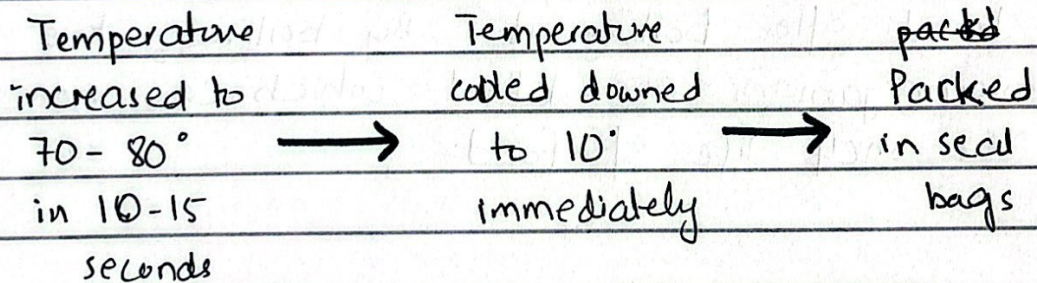 Temperature
increased to
70 - 80°
in 10-15
seconds
→
Temperature
cooled downed
to 10°
immediately
→
packd
Packed
in seal
bags